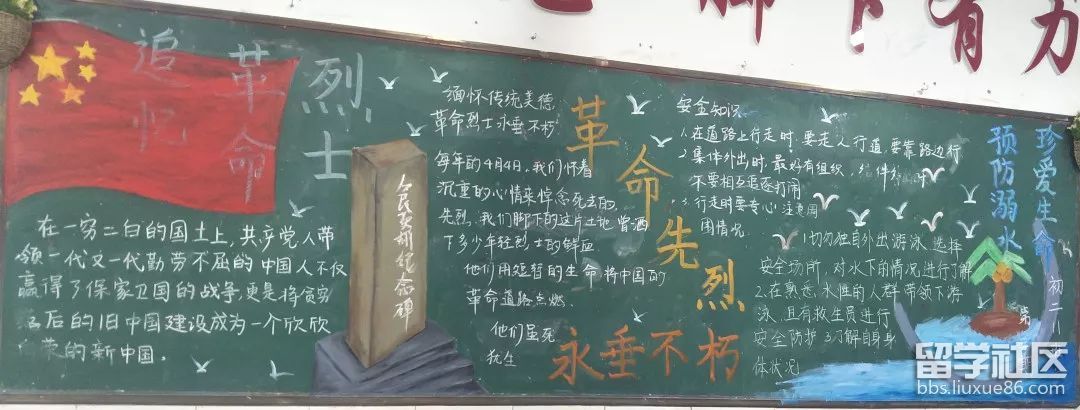 脚下有力
追忆革命烈士
在一穷二白的国土上,共产党人带
领一代又一代勤劳不屈的中国人不仅
赢得了保家卫国的战争,更是将贫穷
后的旧中国建设成为一个欣欣
向荣的新中国。
人民英雄纪念碑
缅怀传统美德
革命烈士永垂不朽
每年的4月4,我们怀着
沉重的心情来悼念死去的
先烈,我们脚下的这片土地曾洒
下多少年轻烈士的鲜
他们用短暂的生命将中国的
革命道路点燃.
他们虽死
犹生
革命先烈
永垂不朽
安全知识
1.在道路上行走时,要走人行道,要靠路边行
2.集体外出时,最好有组织,
不要相互追逐打闹
3.行走时要专心注意周
围情况
1.切勿独自外出游泳,选择
安全场所,对水下的情况进行了解
2.在熟悉水性的人群带领下游
泳,且有救生员进行
安全防护 3.了解自身身
体状况
珍爱生命
预防溺水
初二
留学社区
bbs.liuxue86.com